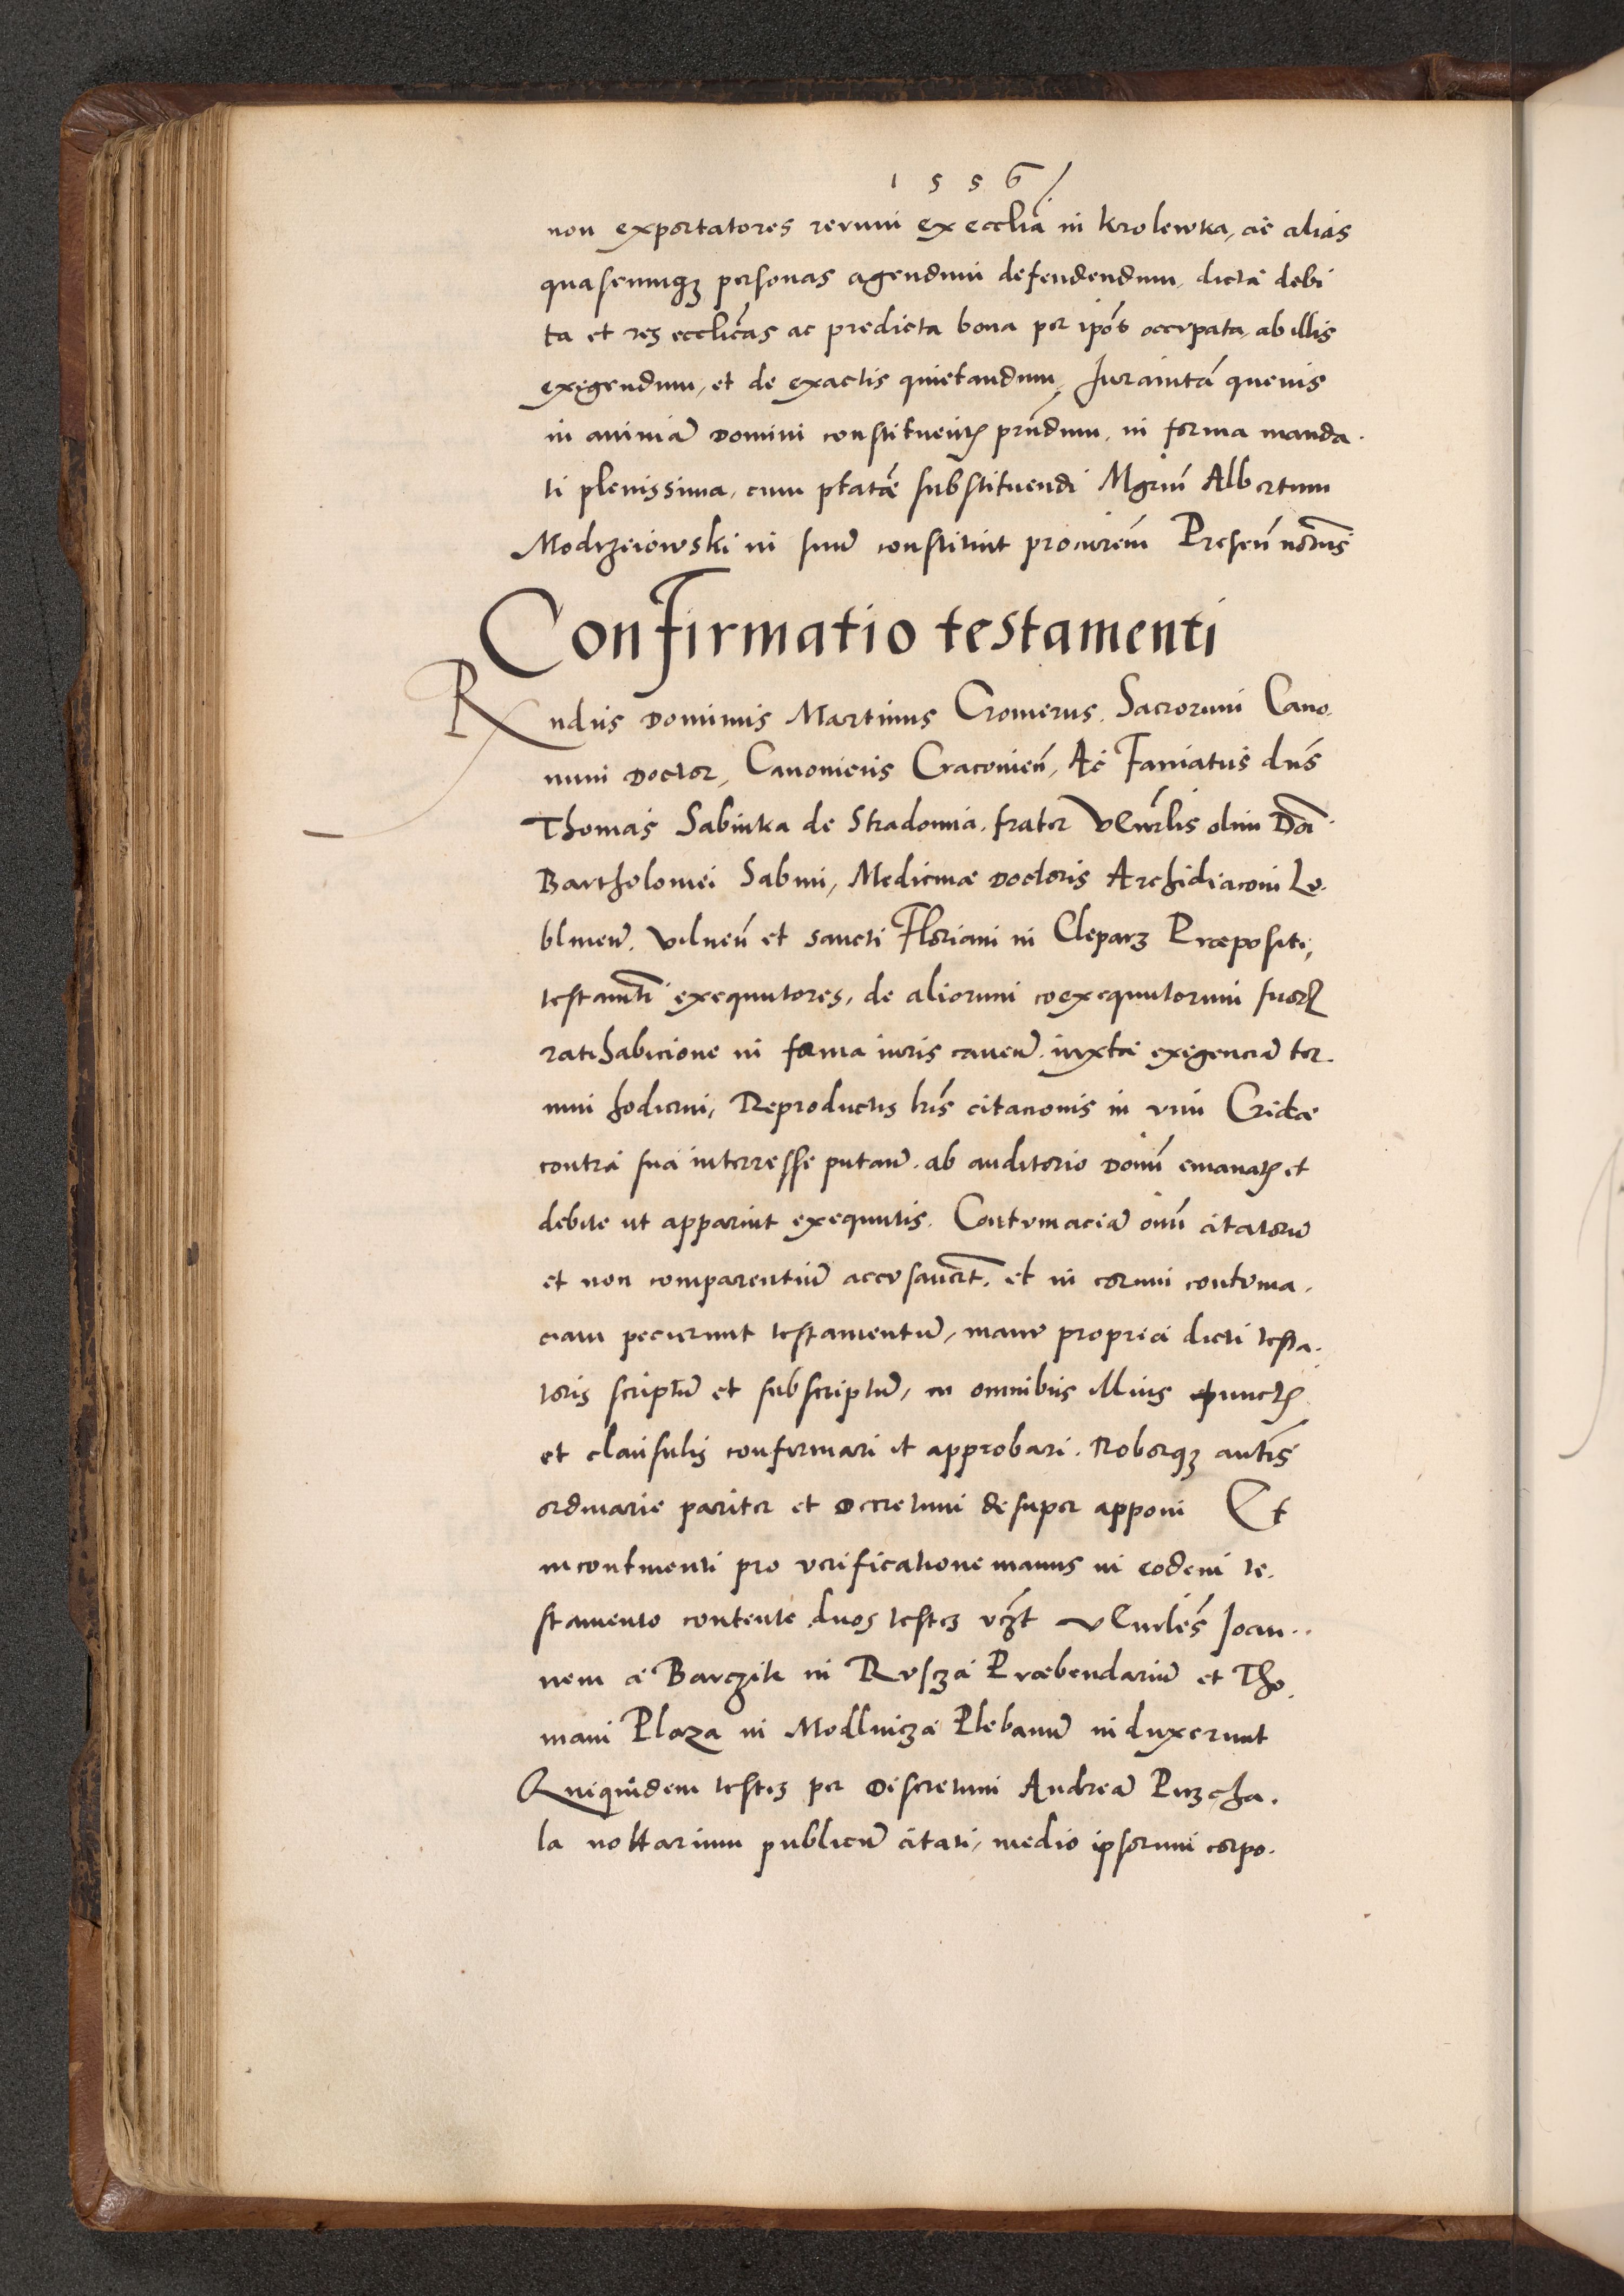 1556
non exportatores rerum ex ecclia in Krolewka, ac alias
quascunq3 personas agendum defendendum, dicta debi
ta et res ecclicas ac predicta bona per ipos occupata, ab illis
exigendum, et de exactis quietandum, Iuramtu quevis
in animā domini constituentis prndum, in forma manda
ti plenissima, cum ptate substituendi Mgrum Albertum
Modrzeiowski in suū constituit procurem Presen notus
Confirmatio testamenti
Rndus Dominus Martinus Cromerus, Sacrorum Cano
num Doctor, Canonicus Cracovien, Ac Famatus dns
Thomas Sabinka de Stradomia, frater Venrlis olim Dni
Bartholomei Sabini, Medicinæ Doctoris Archidiaconi Lu
blinen, Vilnen et sancti Floriani in Clepar3 Præpositi,
testamti exequutores, de aliorum coexequutorum suor
ratihabicione in forma iuris caven, iuxta exigenciā ter
mini hodierni, Reproductis lris citacionis in vim Cridæ
contra sua interresse putan, ab auditorio domi emanatis et
debite ut apparuit exequutis. Contumaciā oim citatorū
et non comparentiū accusaverūt, et in eorum contuma
ciam pecierunt testamentū, manu propria dicti testa
toris scriptū et subscriptū, in omnibus illius punctis
et clausulis confirmari et approbari. Roborq3 autis
ordinarie pariter et Decretum desuper apponi Et
incontinenti pro verificatione manus in eodem te
stamento contente duos testes vct Venrles Joan
nem a Barczik in Ruscza Præbendariū et Tho
mam Plaza in Modlnicza Plebanū induxerunt
Quiquidem testes per Discretum Andreā Puzcha
la nottarium publicū citati, medio ipsorum corpo